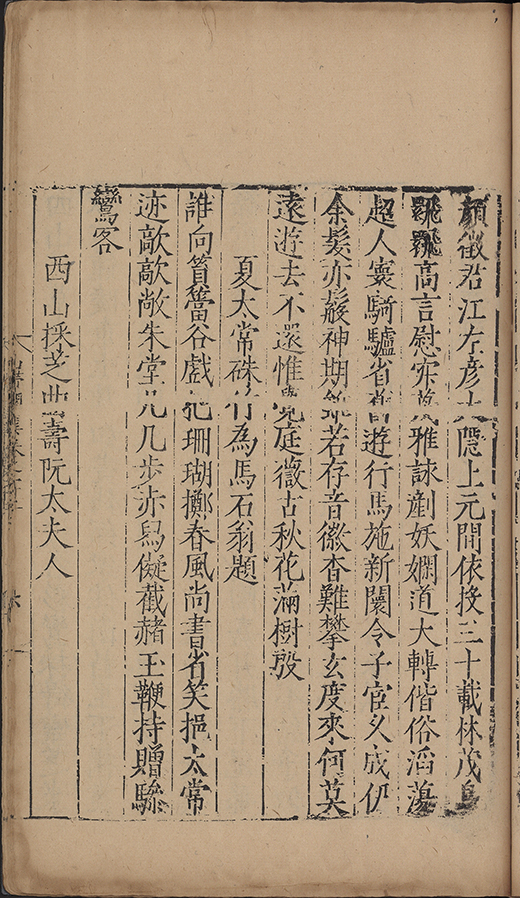 顏徵君江左彥士隱上元間依投三十載林茂
翩翩高言慰寂莫風雅諫剷妖嫻道大轉偕俗滔蕩
超人寰騎驢省舊遊行馬施新闤令子官乆成伊
余髮亦鬖神期若存音徽杳難攀玄度來何莫
遠遊去不還惟覓庭徵古秋花滿樹殷
夏太常硃竹為馬石翁題
誰向篔簹谷戲把珊瑚擲春風尚書省笑挹太常
迹歊歊敞朱堂几几步赤舄儗截赭玉鞭持贈驂
鸞客
西山採芝曲壽阮太夫人